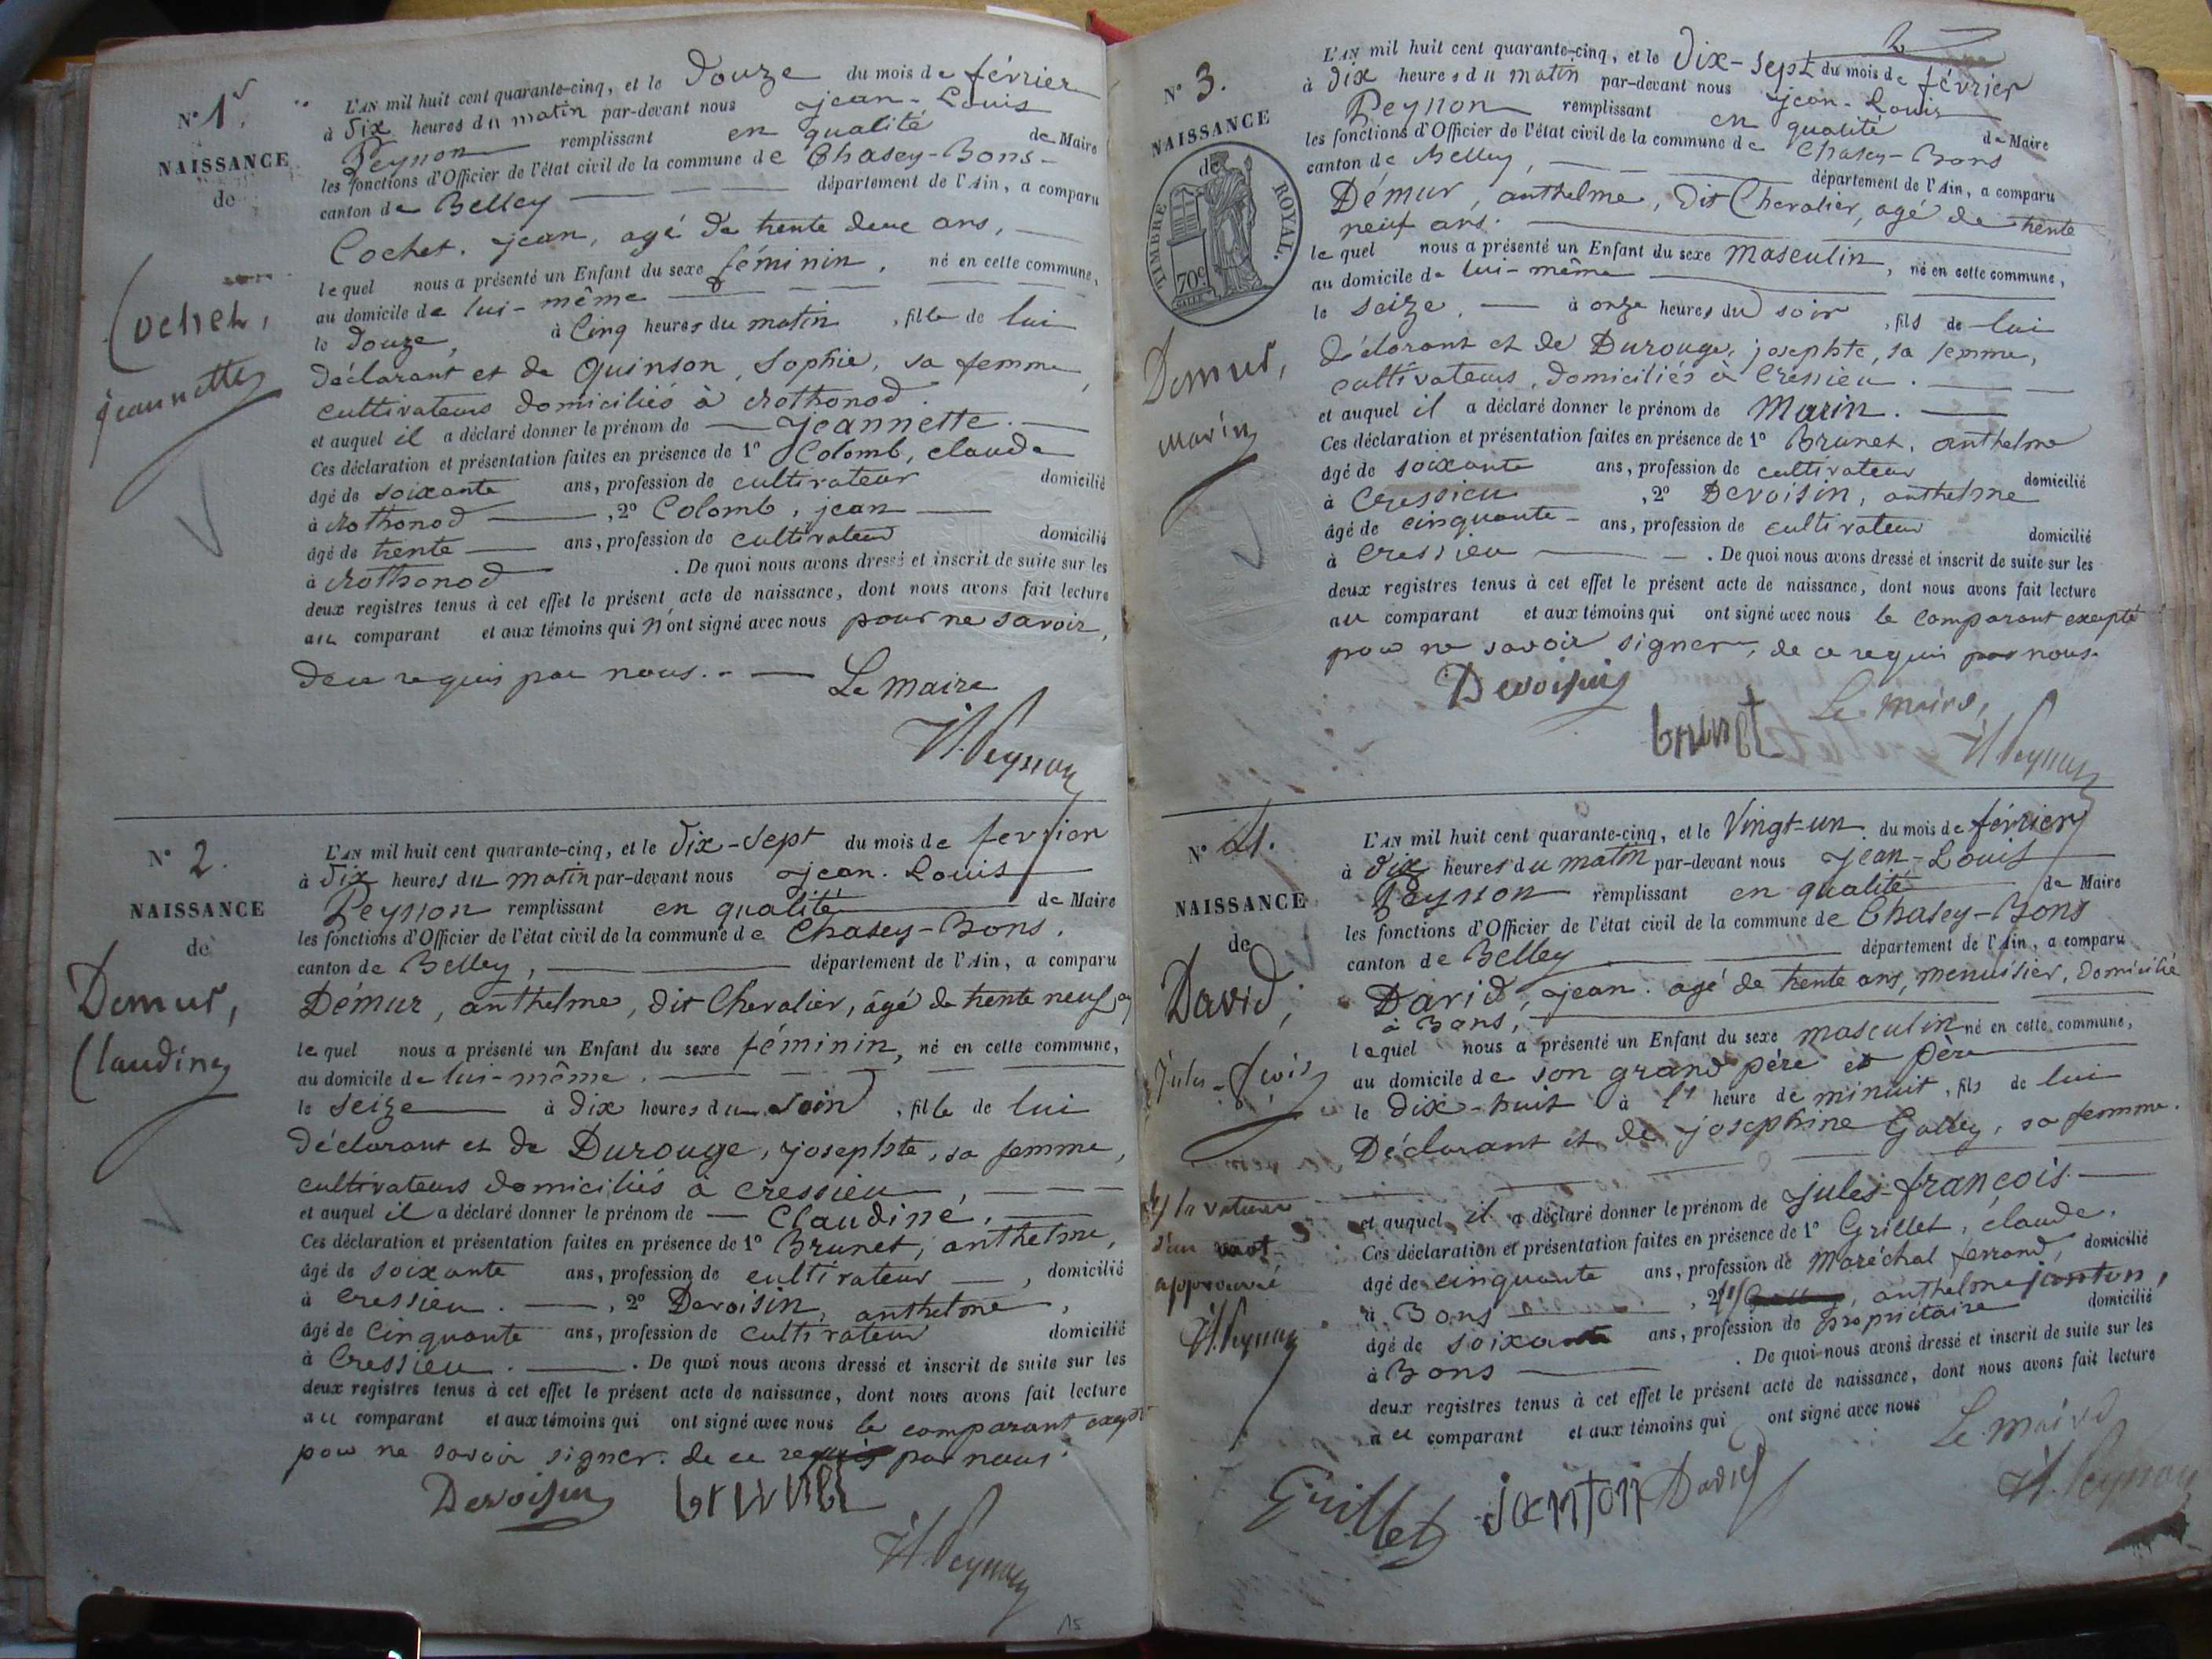 N° 1er.
NAISSANCE
de
Cochet,
jeannette
L'AN mil huit cent quarante-cinq, et le Douze du mois de février
à Dix heures du matin par-devant nous jean-Louis
Peysson remplissant en qualité de Maire
les fonctions d'Officier de l'état civil de la commune de Chasey-Bons
canton de Belley département de l'Ain, a comparu
Cochet, jean, agé de trente deux ans,
lequel nous a présenté un Enfant du sexe féminin, né en cette commune,
au domicile de lui-même
le Douze, à Cinq heures du matin, fille de lui
déclarant et de Quinson, Sophie, sa femme,
cultivateurs domiciliés à Rothonod.
et auquel il a déclaré donner le prénom de jeannette.
Ces déclaration et présentation faites en présence de 1° Colomb, claude
âgé de soixante ans, profession de cultivateur domicilié
à Rothonod, 2° Colomb, jean
âgé de trente ans, profession de cultivateur domicilié
à Rothonod. De quoi nous avons dressé et inscrit de suite sur les
deux registres tenus à cet effet le présent acte de naissance, dont nous avons fait lecture
au comparant et aux témoins qui n'ont signé avec nous pour ne savoir,
de ce requis par nous.
Le maire
Peysson
N° 2.
NAISSANCE
de
Demur,
Claudine
L'AN mil huit cent quarante-cinq, et le Dix-Sept du mois de fevrier
à Dix heures du matin par-devant nous jean-Louis
Peysson remplissant en qualité de Maire
les fonctions d'Officier de l'état civil de la commune de Chasey-Bons,
canton de Belley, département de l'Ain, a comparu
Démur, anthelme, dit Chevalier, âgé de trente neuf ans
lequel nous a présenté un Enfant du sexe féminin, né en cette commune,
au domicile de lui-même.
le Seize à Dix heures du soir, fille de lui
Déclarant et de Durouge, josephte, sa femme,
cultivateurs domiciliés à Cressieu,
et auquel il a déclaré donner le prénom de Claudine.
Ces déclaration et présentation faites en présence de 1° Brunet, anthelme,
âgé de soixante ans, profession de cultivateur, domicilié
à Cressieu., 2° Devoisin, anthelme,
âgé de Cinquante ans, profession de cultivateur domicilié
à Cressieu. De quoi nous avons dressé et inscrit de suite sur les
deux registres tenus à cet effet le présent acte de naissance, dont nous avons fait lecture
au comparant et aux témoins qui ont signé avec nous le comparant excepté
pour ne savoir signer. de ce requis par nous.
Devoisin brunet
Peysson
15
2
N° 3.
NAISSANCE
de
TIMBRE ROYAL.
70c
Demur,
Marin
L'AN mil huit cent quarante-cinq, et le Dix-Sept du mois de février
à Dix heures du matin par-devant nous jean-Louis
Peysson remplissant en qualité de Maire
les fonctions d'Officier de l'état civil de la commune de Chasey-Bons
canton de Belley, département de l'Ain, a comparu
Démur, anthelme, dit Chevalier, agé de trente
neuf ans.
lequel nous a présenté un Enfant du sexe masculin, né en cette commune,
au domicile de lui-même
le Seize. à onze heures du soir, fils de lui
déclarant et de Durouge, josephte, sa femme,
cultivateurs, domiciliés à Cressieu.
et auquel il a déclaré donner le prénom de Marin.
Ces déclaration et présentation faites en présence de 1° Brunet, anthelme
âgé de soixante ans, profession de cultivateur domicilié
à Cressieu, 2° Devoisin, anthelme
âgé de cinquante ans, profession de cultivateur domicilié
à Cressieu. De quoi nous avons dressé et inscrit de suite sur les
deux registres tenus à cet effet le présent acte de naissance, dont nous avons fait lecture
au comparant et aux témoins qui ont signé avec nous le comparant excepté
pour ne savoir signer, de ce requis par nous.
Devoisin
brunet
Le maire,
Peysson
N° 4.
NAISSANCE
de
David,
Jules-frçois
approuvé
Peysson
L'AN mil huit cent quarante-cinq, et le Vingt-un du mois de février
à dix heures du matin par-devant nous jean-Louis
Peysson remplissant en qualité de Maire
les fonctions d'Officier de l'état civil de la commune de Chasey-Bons
canton de Belley département de l'Ain, a comparu
David, jean. agé de trente ans, menuisier, domicilié
à Bons,
lequel nous a présenté un Enfant du sexe masculin né en cette commune,
au domicile de son grand père et père
le dix-huit à l' heure de minuit, fils de lui
Déclarant et de josephine Galley, sa femme.
et auquel il a déclaré donner le prénom de jules-françois.
Ces déclaration et présentation faites en présence de 1° Grillet, claude,
âgé de cinquante ans, profession de Maréchal ferrand, domicilié
à Bons, 2° anthelme janton,
âgé de soixante ans, profession de propriétaire domicilié
à Bons. De quoi nous avons dressé et inscrit de suite sur les
deux registres tenus à cet effet le présent acte de naissance, dont nous avons fait lecture
au comparant et aux témoins qui ont signé avec nous
Le maire
Guillet janton David
Peysson